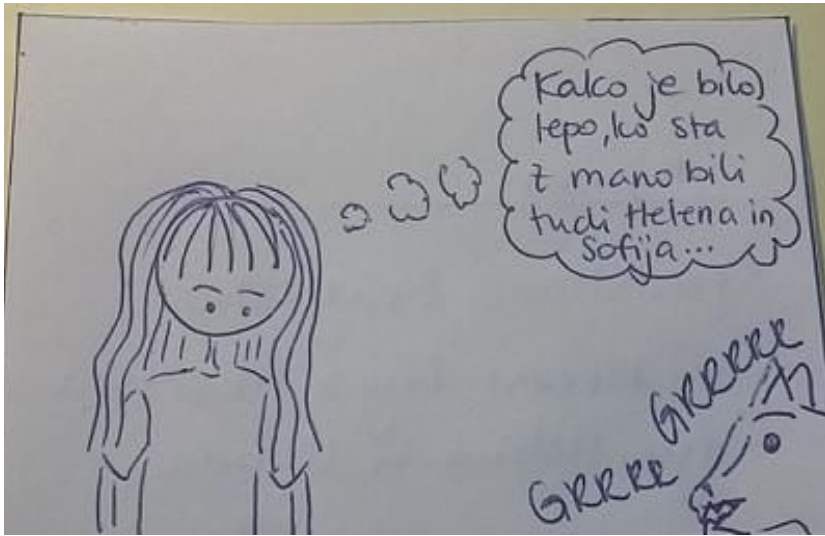 Kako je bilo
lepo, ko sta
z mano bili
tudi Helena in
Sofija...
GRRRRR
GRRRR